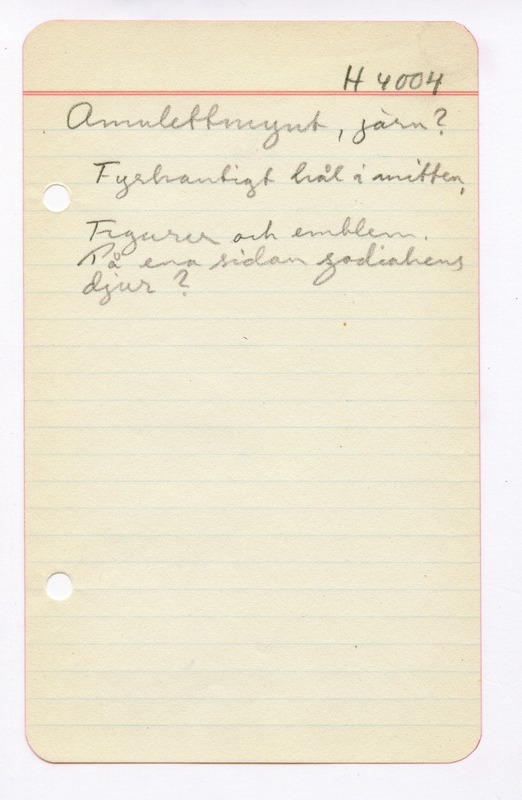 H 4004
Amulettmynt, järn?
Fyrkantigt hål i mitten,
Figurer och emblem.
På ena sidan zodiakens
djur?